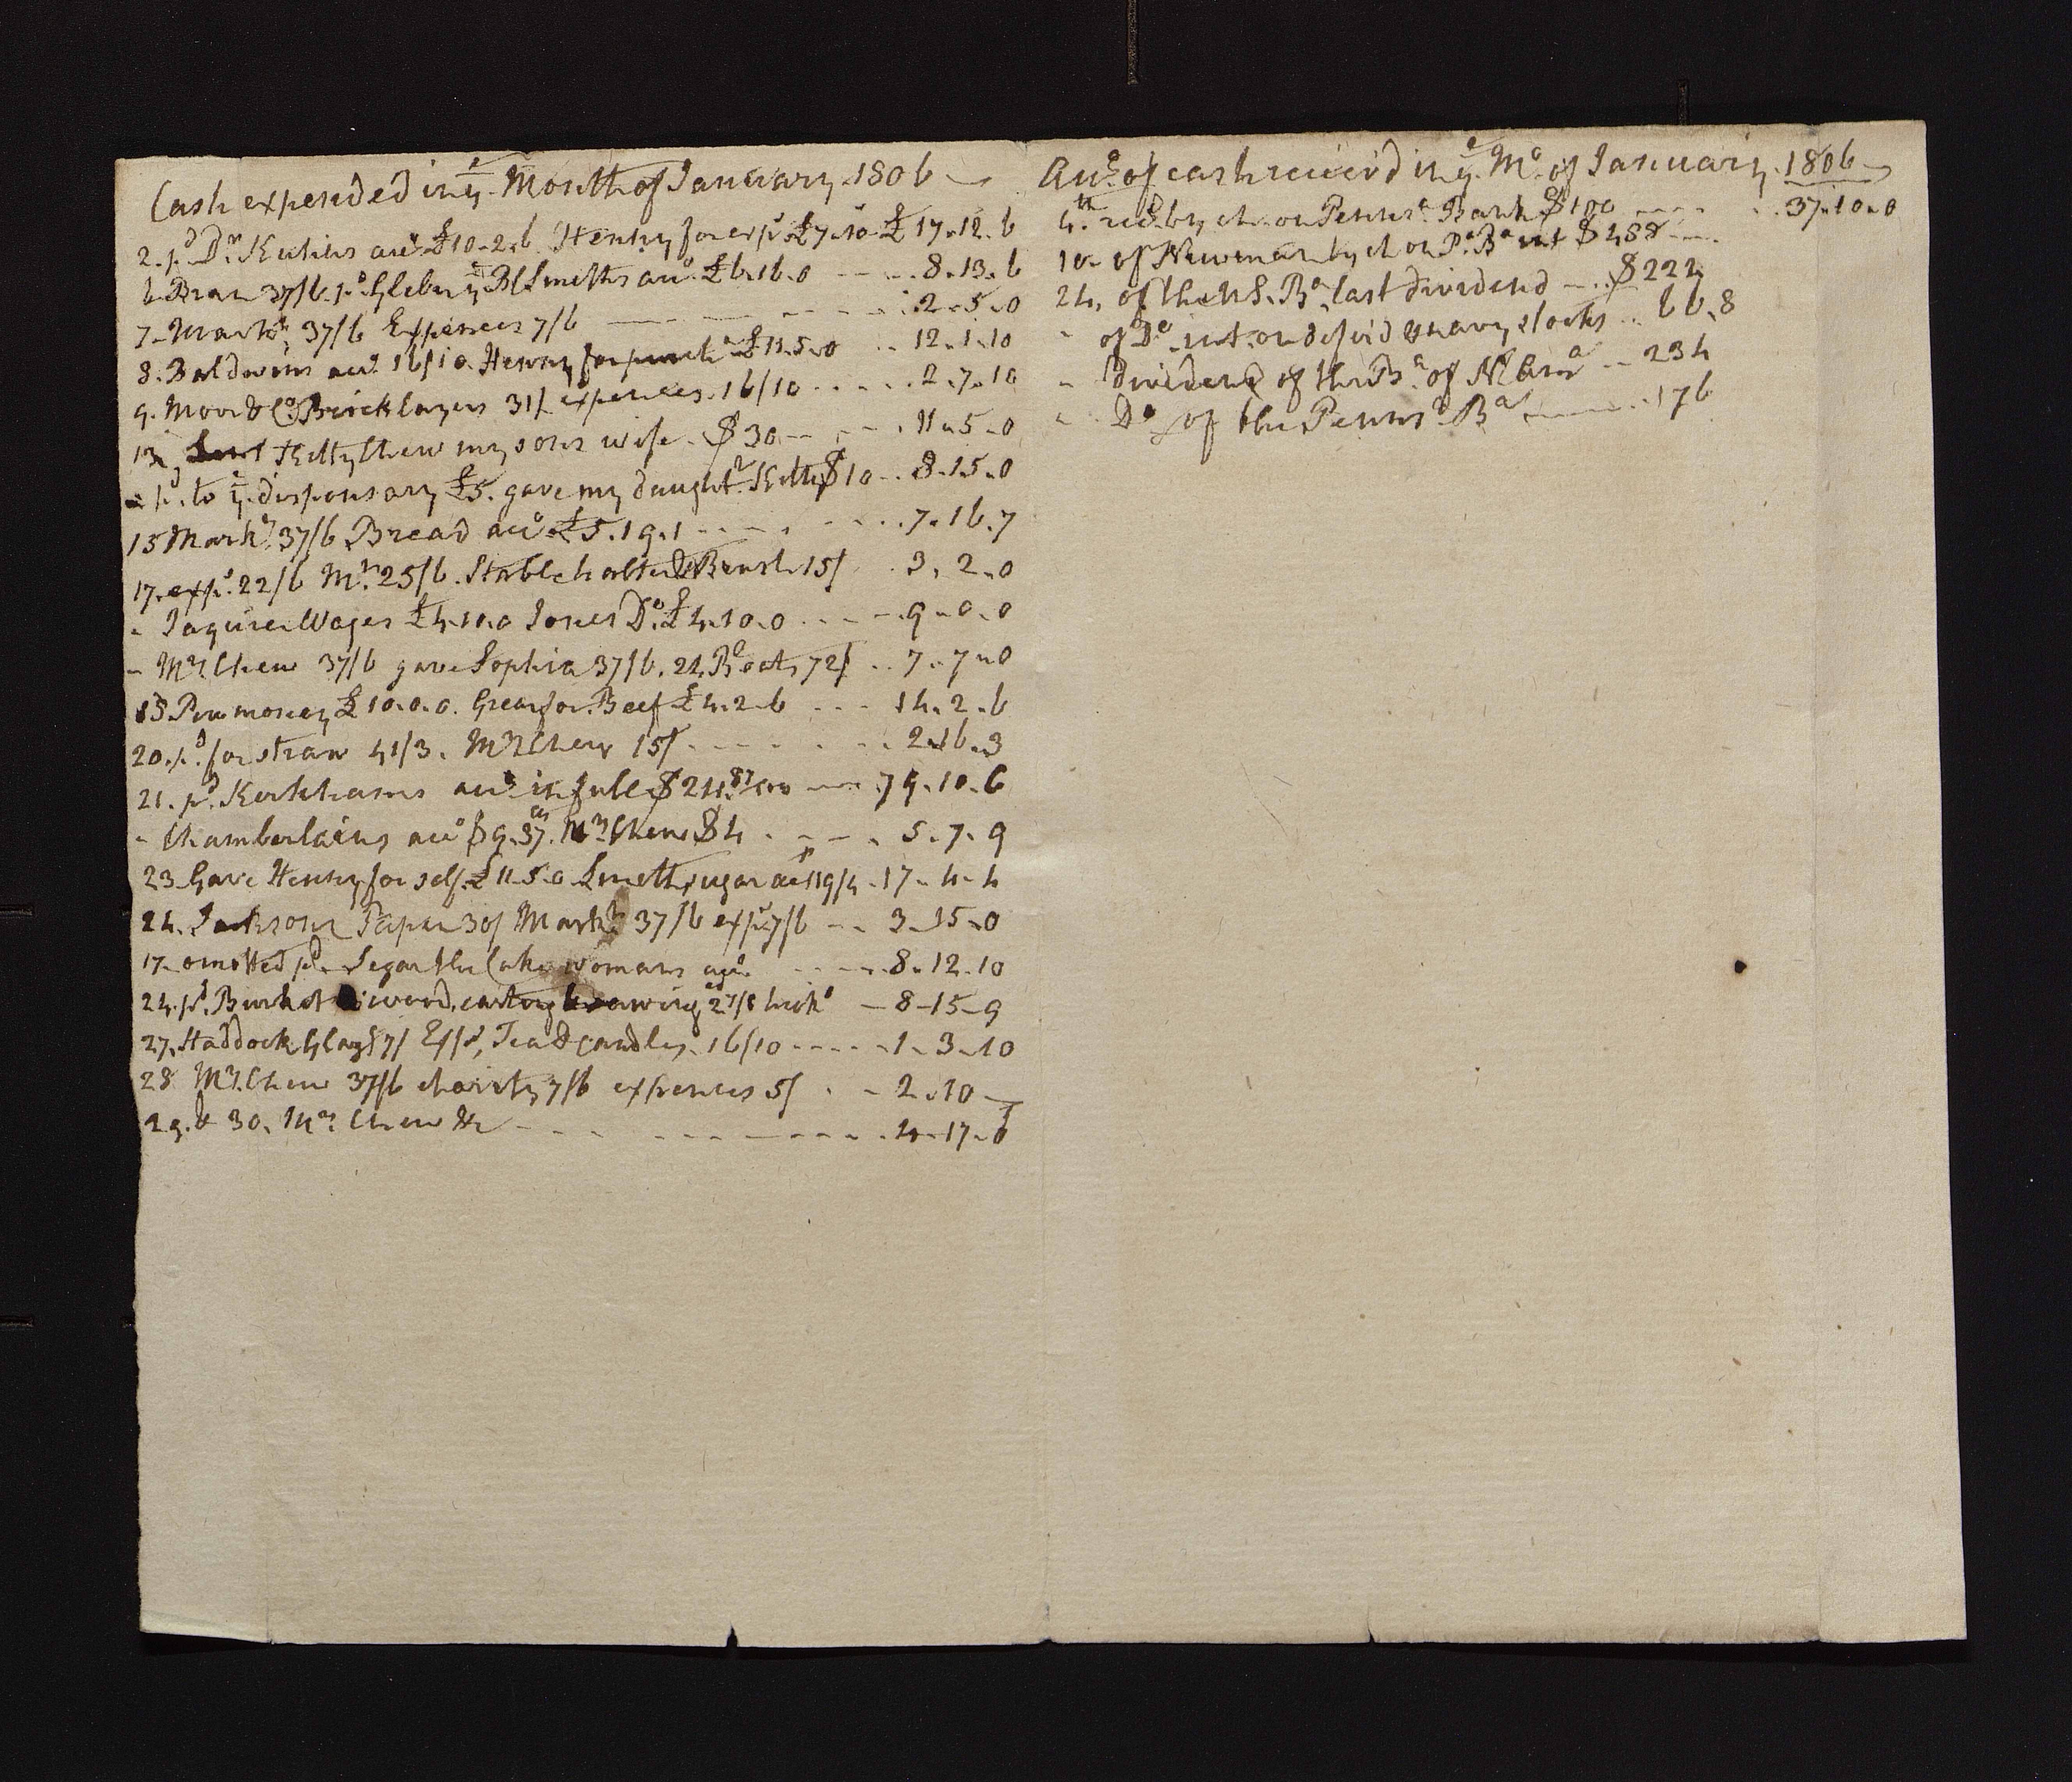 Cash expended in ye Month of January 1806
2. pd. Dr. Kuhns acco. £10-2-6 Henry for exps. £7-10 £17-12-6
6 Bran 37/6 pd. Gleburg Bl Smeths acco. £6.16.0 8.13.6
7. Markt. 37/6 Expences 7/6 2-5-0
8. Baldwins acco. 16/10. Henry for £11.5.0 12-1-10
9. Moor & Co. Bricklayers 31/ expences. 16/10 2.7.10
13 Kitty Chew my sons wife. $30 11-5-0
- pd. to ye. dispensary £5. gave my daughtr. Kitty $10 8-15-0
15 Markt. 37/6 Bread acco. £5.19.1 7.16.7
17. exps. 22/6 Mrs. 25/6. Stable halter & Brush 15/ 3.2.0
- Wages £4.10.0 Jones Do. £4.10.0 9-0-0
- Mrs. Chew 37/6 gave Sophia 37/6. 24 Bo. oats 72/ 7-7-0
18 Pew money £10.0.0. for Beef £4-2-6 14.2.6
20. pd. for straw 41/3. Mrs. Chew 15/ 2.16.3
21. pd. Kerkhams acco. in full $ 79.10.6
- Chamberlains acco. $9.37 cts. Mrs. Chew $4 5.7.9
23 Gave Henry for self £11-5-0 Smeth sugar acco. 119/4 17-4-4
24. Jacksons Paper 30/ Markt. 37/6 exps. 7/6 3-15-0
17. omitted pd. the Cake womans acco. 8.12.10
24. pd. wood, carting 8-15-9
27. Haddock Glass 7/ Exps., Tea & candles. 16/10 1-3-10
28 Mrs. Chew 37/6 charity 7/6 expences 5/ 2.10
29. & 30. Mrs. Chew &c 4-17-0
Acco. of cash receiv'd in ye. Mo. of January 1806
4th. recd. by ch. on Pennsa. Bank $100 37.10.0
10. of Newman by ch on Pa. Ba. int $488
24. of the U.S. Ba. last dividend $224
- of Do. int. on defer'd & navy stocks 66.8
- dividend of the Ba. of N. Ama. 234
- Do. of the Pennsa. Ba. 176